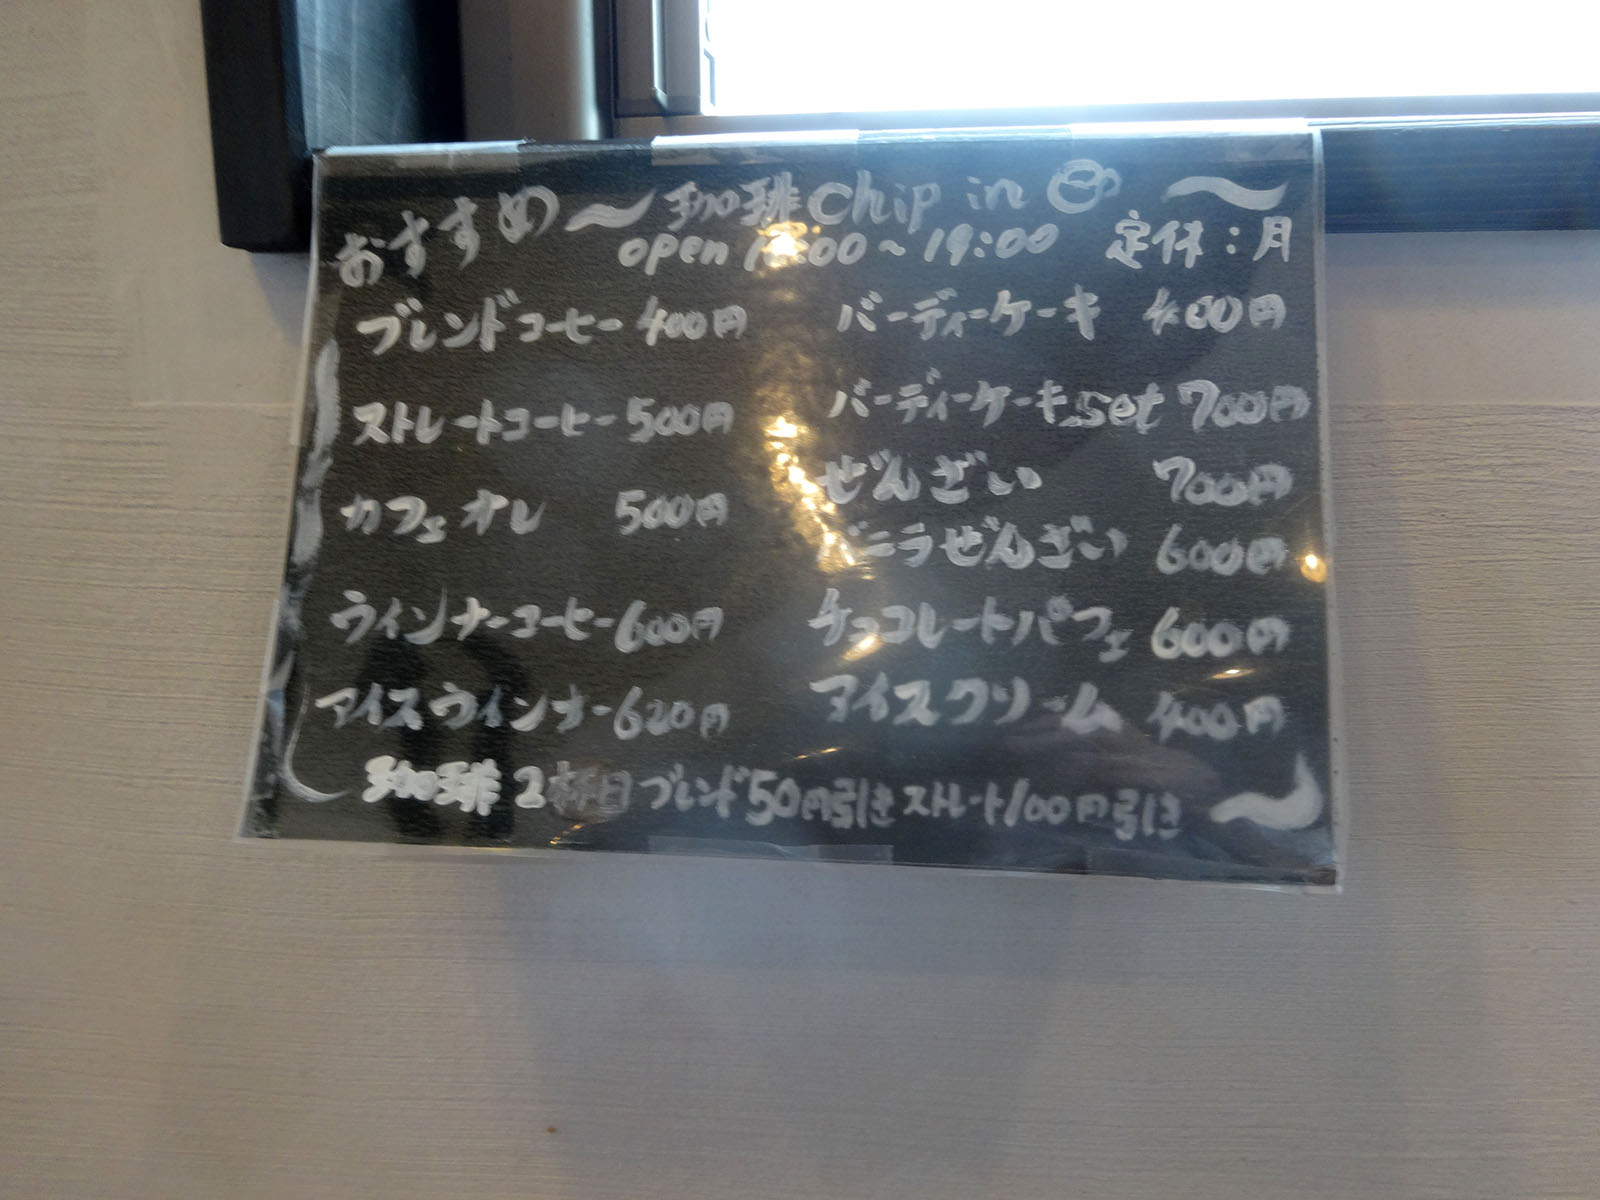 おすすめ〜珈琲 chip in 〜
open :00〜19:00 定休:月
ブレンドコーヒー 400円
ストレートコーヒー 500円
カフェオレ 500円
ウインナーコーヒー 600円
アイスウインナー 620円
バーディーケーキ 400円
バーディーケーキset 700円
ぜんざい 700円
バニラぜんざい 600円
チョコレートパフェ 600円
アイスクリーム 400円
珈琲2杯目ブレンド50円引きストレート100円引き